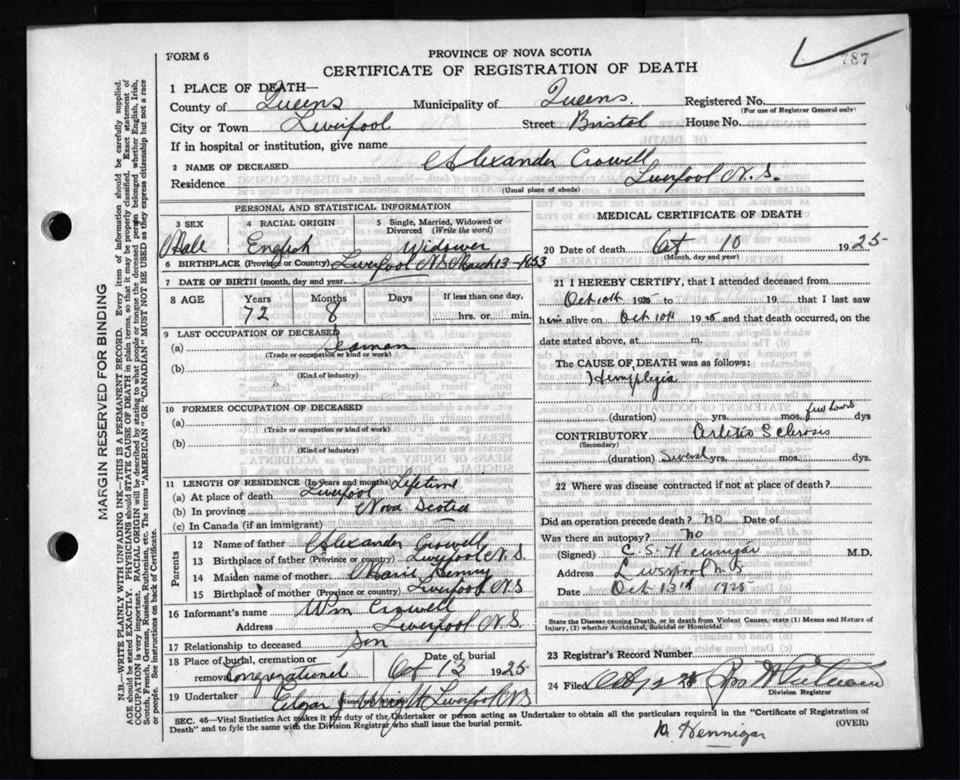 787
FORM 6
PROVINCE OF NOVA SCOTIA
CERTIFICATE OF REGISTRATION OF DEATH
1 PLACE OF DEATH—
County of Queens Municipality of Queens. Registered No.
(For use of Registrar General only)
City or Town Liverpool Street Bristol House No.
If in hospital or institution, give name
2 NAME OF DECEASED Alexander Crowell
Residence Liverpool N.S.
(Usual place of abode)
PERSONAL AND STATISTICAL INFORMATION
3 SEX 4 RACIAL ORIGIN 5 Single, Married, Widowed or Divorced (Write the word)
Male English Widower
6 BIRTHPLACE (Province or Country) Liverpool N.S. March 13-1853
7 DATE OF BIRTH (month, day and year)
8 AGE Years Months Days If less than one day,
72 8 hrs. or min.
9 LAST OCCUPATION OF DECEASED
(a) Seaman
(Trade or occupation or kind or work)
(b)
(Kind of industry)
10 FORMER OCCUPATION OF DECEASED
(a)
(Trade or occupation or kind of work)
(b)
(Kind of industry)
11 LENGTH OF RESIDENCE (In years and months) Lifetime
(a) At place of death Liverpool
(b) In province Nova Scotia
(c) In Canada (if an immigrant)
Parents
12 Name of father Alexander Crowell
13 Birthplace of father (Province or country) Liverpool N.S.
14 Maiden name of mother
15 Birthplace of mother (Province or country) Liverpool N.S
16 Informant's name Wm Crowell
Address Liverpool N.S.
17 Relationship to deceased Son
18 Place of burial, cremation or removal Congregational Date of burial Oct 13 1925
19 Undertaker Edgar J Wright Liverpool NS
MEDICAL CERTIFICATE OF DEATH
20 Date of death Oct 10 1925
(Month, day and year)
21 I HEREBY CERTIFY, that I attended deceased from
Oct 10th 19 to 19 that I last saw
him alive on Oct 10th 1925 and that death occurred, on
date stated above, at m.
The CAUSE OF DEATH was as follows:
Hemiplegia
(duration) yrs. mos. few hours dys
CONTRIBUTORY Arterio Sclerosis
(Secondary)
(duration) several yrs. mos. dys.
22 Where was disease contracted if not at place of death?
Did an operation precede death? no Date of
Was there an autopsy? No
(Signed) C. S. Hennigar M.D.
Address Liverpool N.S
Date Oct 13th 1925
State the Disease causing Death, or in death from Violent Causes, state (1) Means and Nature of
Injury, (2) whether Accidental, Suicidal or Homicidal.
23 Registrar's Record Number
24 Filed Oct
Division Registrar
SEC. 46—Vital Statistics Act makes it the duty of the Undertaker or person acting as Undertaker to obtain all the particulars required in the "Certificate of Registration of
Death" and to fyle the same with the Division Registrar who shall issue the burial permit.
(OVER)
Hennigar
MARGIN RESERVED FOR BINDING
N.B.—WRITE PLAINLY WITH UNFADING INK—THIS IS A PERMANENT RECORD. Every item of information should be carefully supplied.
AGE should be stated EXACTLY. PHYSICIANS should STATE CAUSE OF DEATH in plain terms, so that it may be properly classified. Exact statement of
OCCUPATION is very important. RACIAL ORIGIN will be described by stating to what people or tongue the deceased person belonged whether English, Irish,
Scotch, French, German, Russian, Ruthenian, etc. The terms "AMERICAN" OR "CANADIAN" MUST NOT BE USED as they express citizenship but not a race
or people. See instructions on back of Certificate.